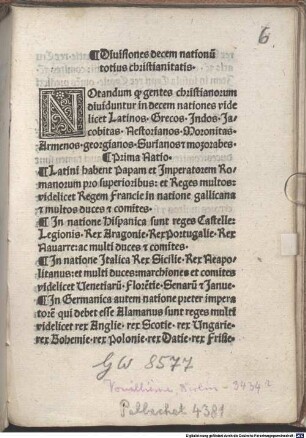 6
¶Diuisiones decem nationū
totius christianitatis.
NOtandum ꝙ gentes christianorum
diuiduntur in decem nationes vide
licet Latinos. Grecos. Indos. Ja-
cobitas. Nestorianos. Moronitas
Armenos. georgianos. Surianos ⁊ mozarabes.
¶Prima Natio.
¶Latini habent Papam et Imperatorem Ro-
manorum pro superioribus: et Reges multos:
videlicet Regem Francie in natione gallicana
⁊ multos duces ⁊ comites.
¶In natione Hispanica sunt reges Castelle:
Legionis. Rex Aragonie. Rex Portugalie. Rex
Nauarre: ac multi duces ⁊ comites.
¶In natione Italica Rex Sicilie. Rex Neapo-
litanus: et multi duces: marchiones et comites
videlicet Venetiarū. Florētie. Senarū ⁊ Janue.
¶In Germanica autem natione preter impera
torē: qui debet esse Alamanus sunt reges multi
videlicet rex Anglie. rex Scotie. rex Ungarie.
rex Bohemie. rex Polonie. rex Datie. rex Frisie.
GW 8577
3434
Pellechet 4381